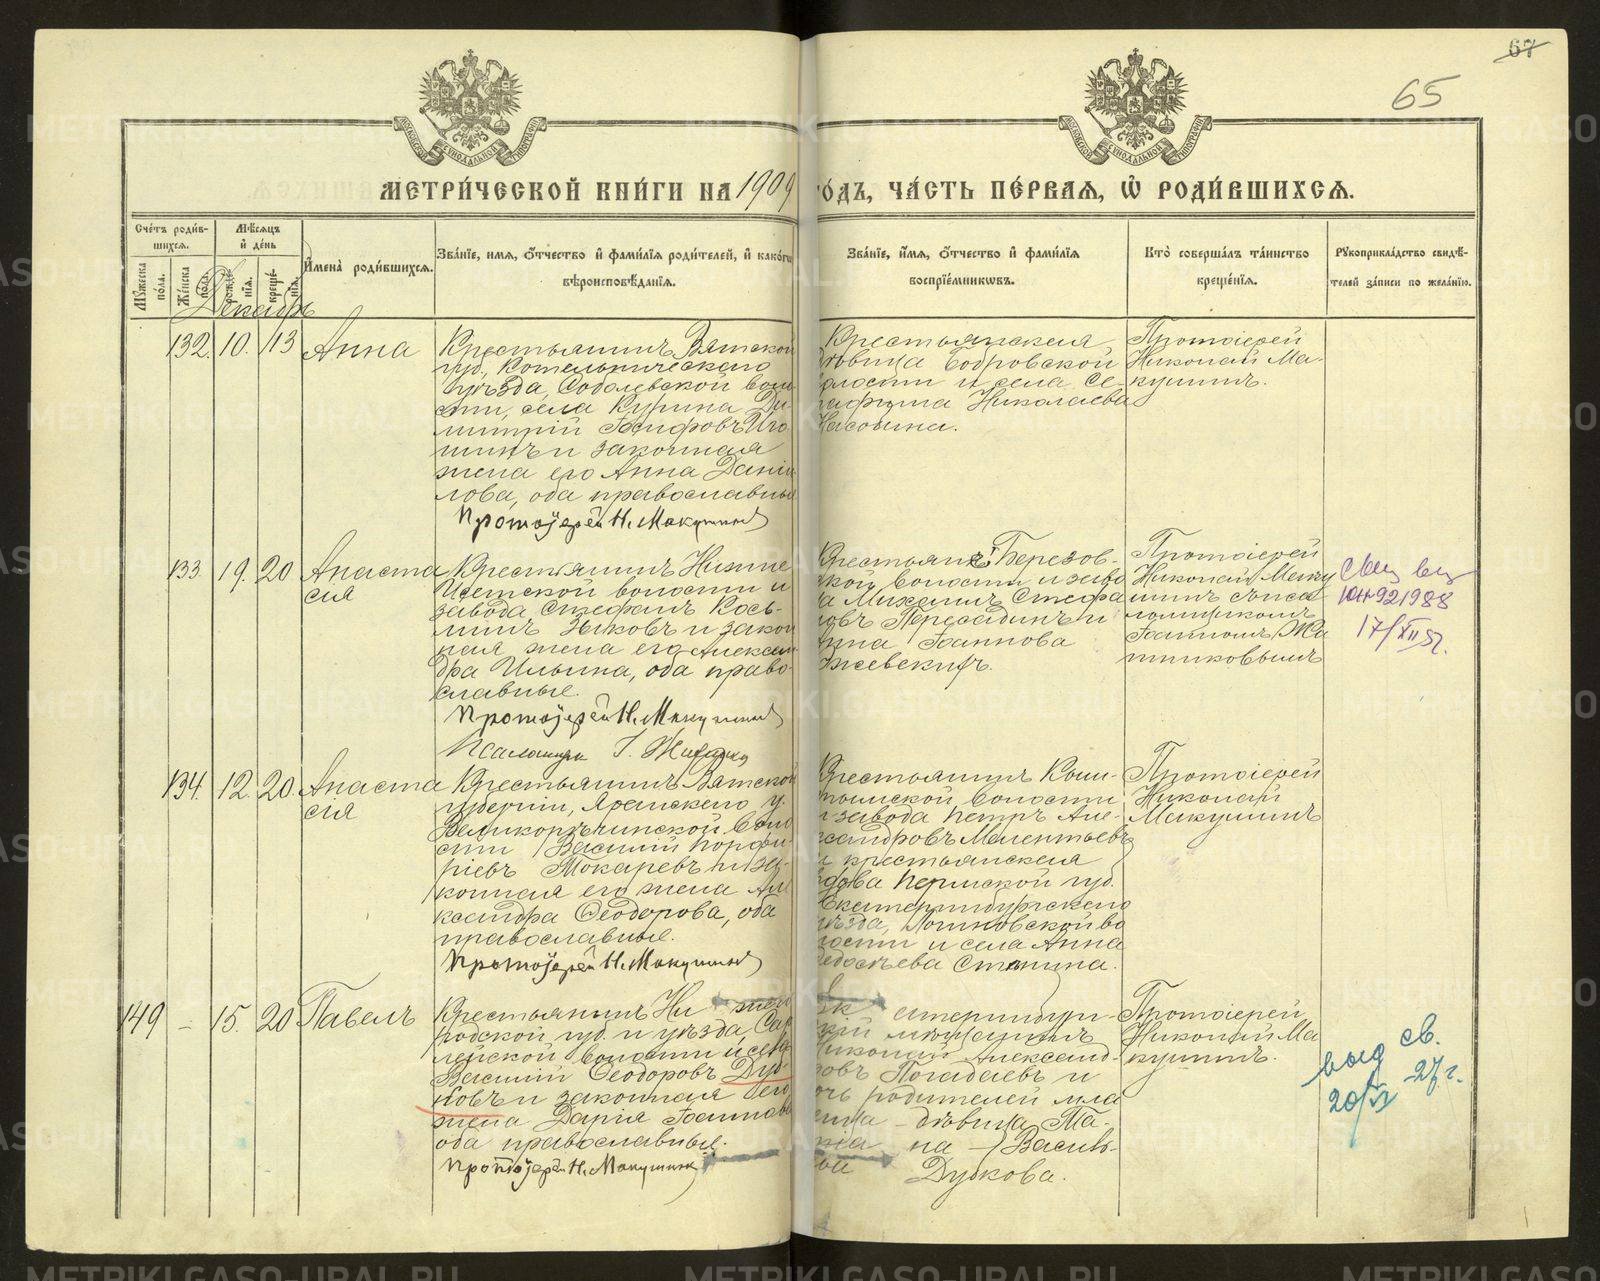 67
65
МЕТРИ́ЧЕСКОЙ КНИ́ГИ НА 1909 ГО́ДЪ, ЧА́СТЬ ПЕ́РВАЯ, Ѡ҆ РОДИ́ВШИХСЯ.
Сче́тъ роди́в-
шихся.
Мꙋжеска по́ла.
Же́нска по́ла.
Мѣ́сяцъ
и҆ де́нь
рожде́-
нїя.
креще́-
нїя.
И҆мена̀ роди́вшихся.
Зва́нїе, имя, ѻ҆́тчество и҆ фами́лїя роди́телей, и҆ како́гѡ
вѣроисповѣ́данїя.
Зва́нїе, и҆́мя, ѻ҆́тчество и҆ фами́лїя
воспрїе́мникѡвъ.
Кто̀ соверша́лъ та́инство
креще́нїя.
Рꙋкоприкла́дство свидѣ́-
телей за́писи по жела́нїю.
Декабрь
132. 10. 13 Анна
Крестьянинъ Вятской
губ., Котельническаго
уѣзда, Соболевской воло
сти, села Курина Ди-
митрій Іосифовъ
и законная
жена его Анна Даніи
лова, оба православные
Протоіерей Н. Макушинъ
Крестьянская
дѣвица Бобровской
волости и села Се-
рафима Николаева
Протоіерей
Николай Ма-
кушинъ.
133 19. 20 Анаста
сія
Крестьянинъ Нижне
Исетской волости и
завода Стефанъ Кось-
минъ Зыковъ и закон
ная жена его Алексан
дра Ильина, оба право-
славные.
Протоіерей Н. Макушинъ
Псаломщик І.
Крестьяне Березов-
ской волости и заво
да Михаилъ Стефа
новъ Пересадинъ и
Анна Іоаннова
Протоіерей
Николай Маку
шинъ съ псал
ломщикомъ
Іоанномъ
никовымъ
Свид выд
ЮН 921988
17/XII 51.
134. 12. 20. Анаста
сія
Крестьянинъ Вятской
губерніи, Яранскаго у.
Великорѣчинской воло
сти Василій Порфи-
ріевъ Токаревъ и за-
конная его жена Але
ксандра Ѳеодорова, оба
православные.
Протоіерей Н. Макушинъ
Крестьянинъ Кыш-
тымской волости
и завода Петръ Але-
ксандровъ Мелентьевъ
и крестьянская
вдова Пермской губ.
Екатеринбургскаго
уѣзда, Логиновской во
лости и села Анна
Ѳедосѣева
Протоіерей
Николай
Макушинъ
149 – 15. 20 Павелъ
Крестьянинъ Ни жего
родской губ. и уѣзда, Сар
лейской волости и села
Василій Ѳеодоровъ Дуд-
ковъ и законная его
жена Дарія Іоаннова
оба православные.
Протоіерей Н. Макушинъ
Ек атеринбург-
скій мѣщанинъ
Николай Александ-
ровъ Погадаевъ и
дочь родителей мла
денца – дѣвица Та-
тіа на – Василь-
ева Дудкова.
Протоіерей
Николай Ма
кушинъ.
выд св.
20/VI 27 г.